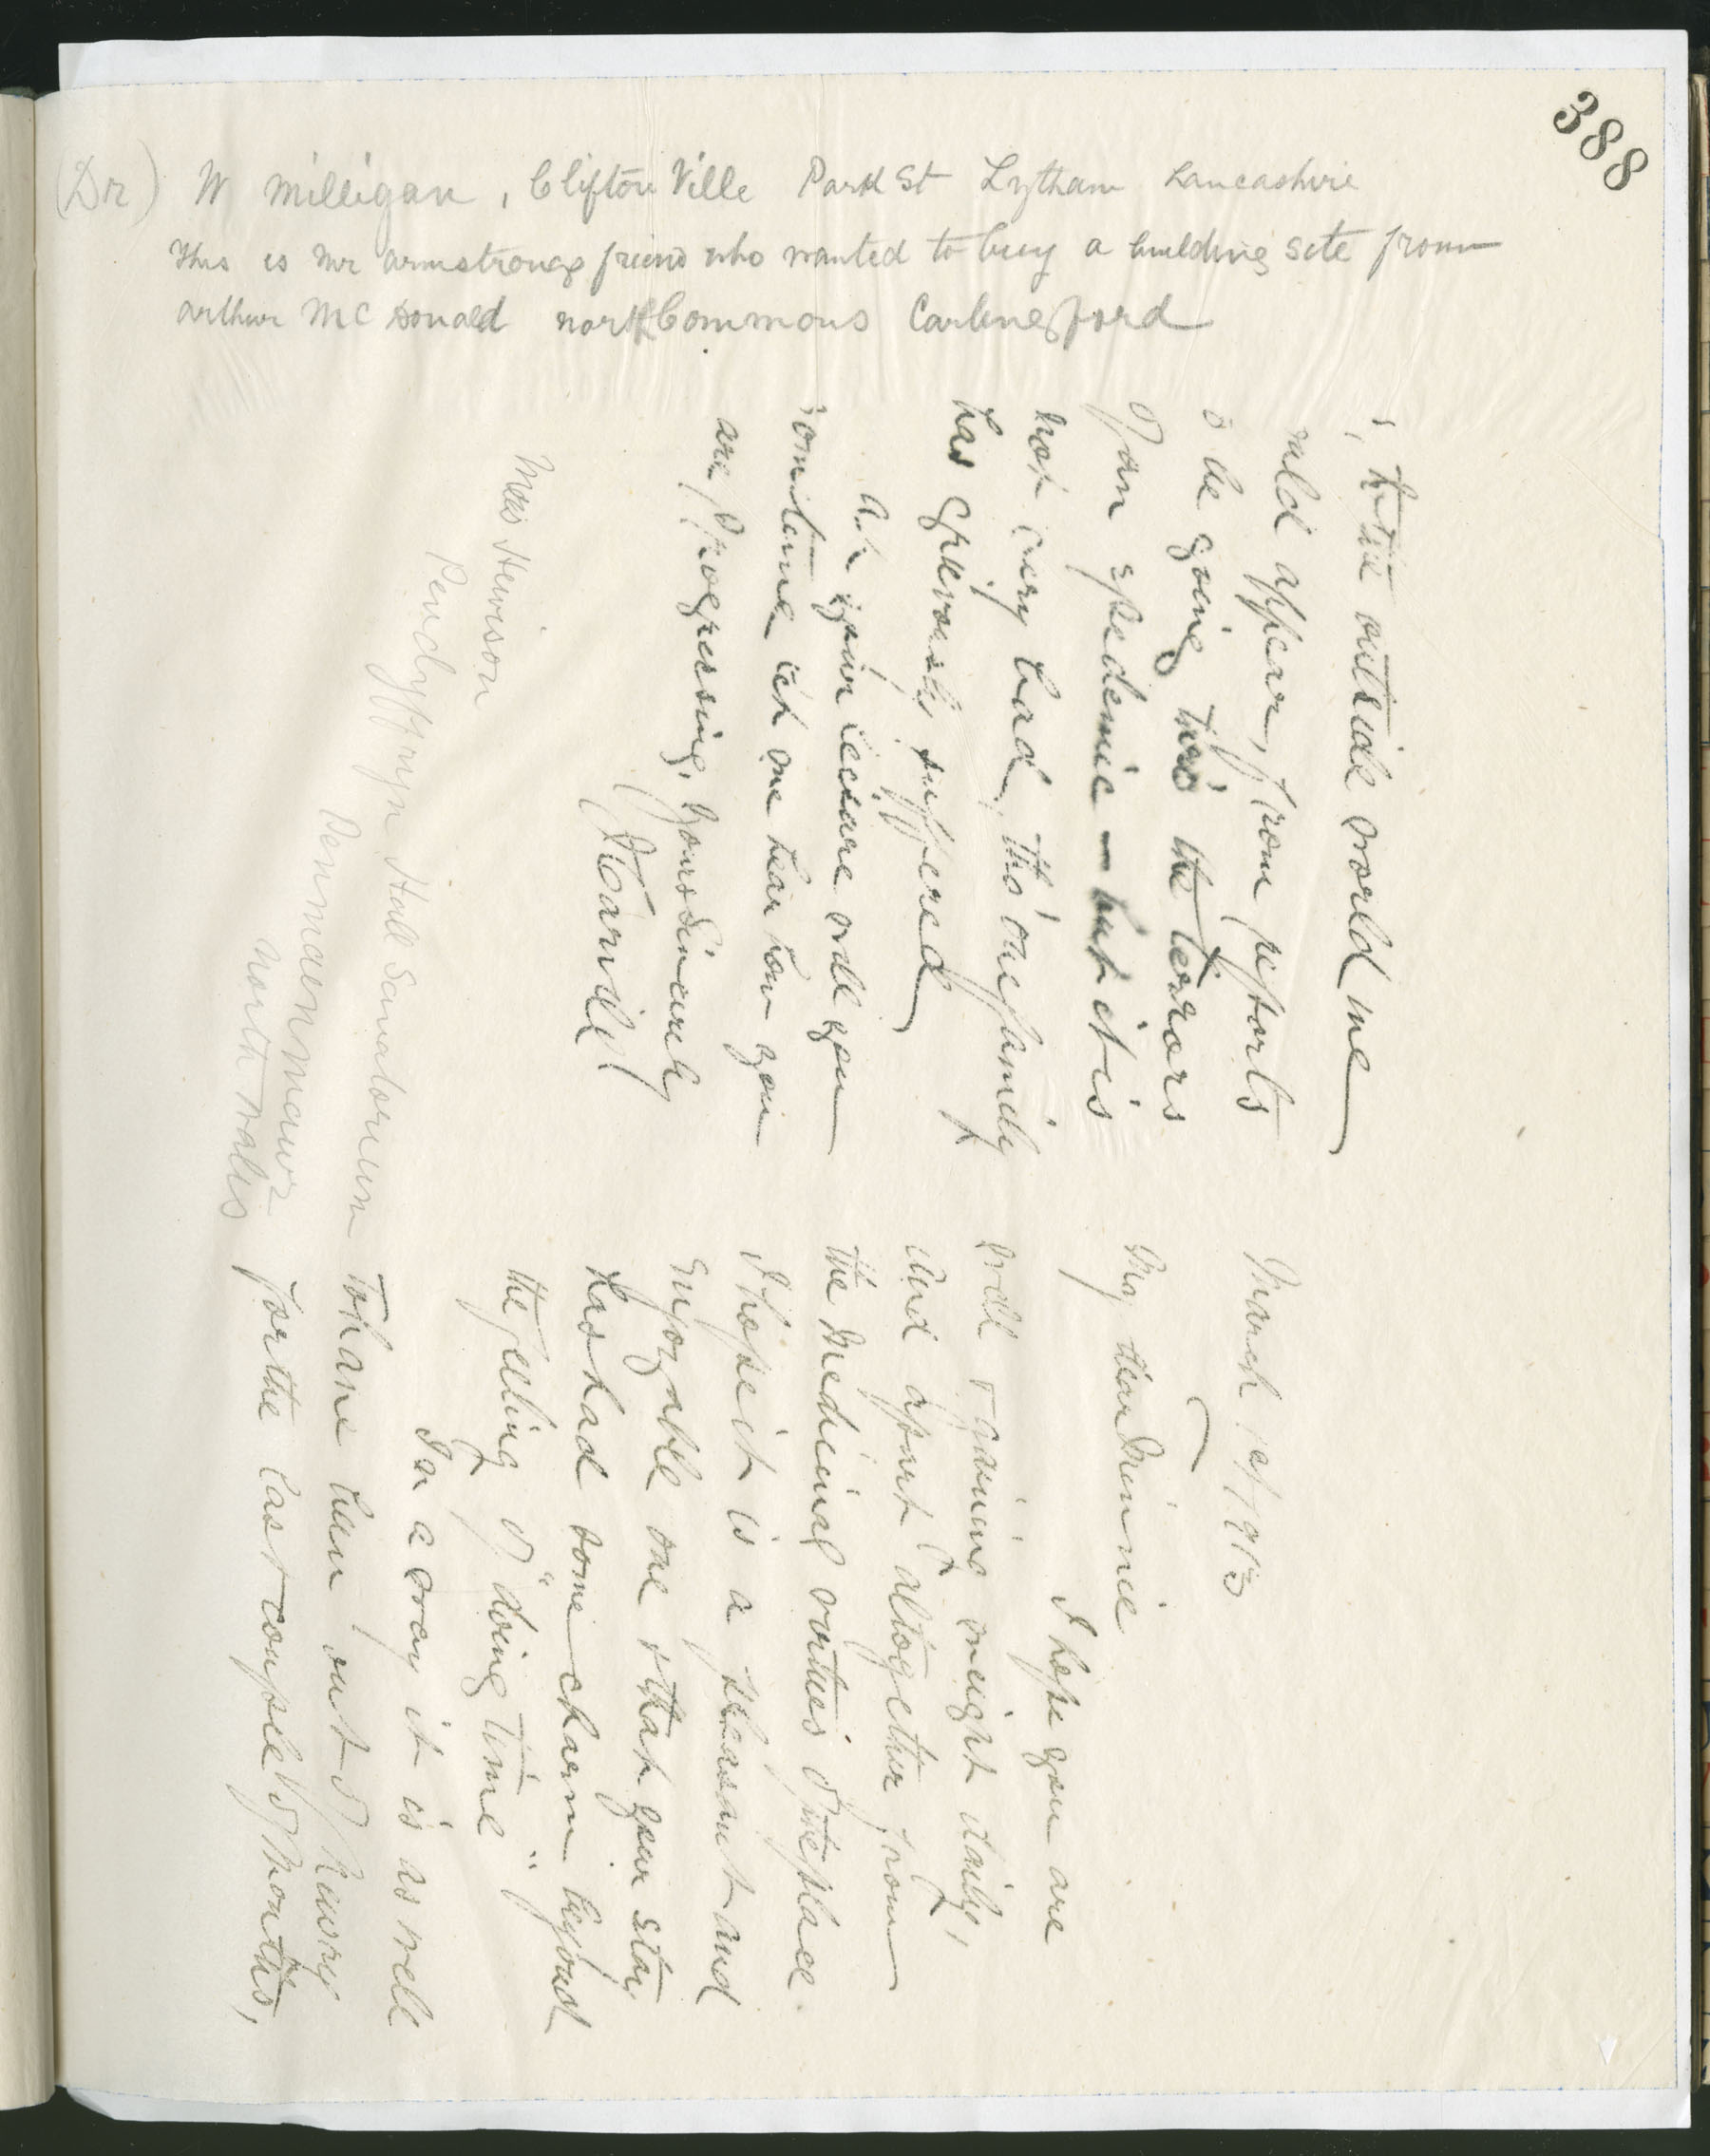 388
(Dr) W Milligan, Clifton Ville Park St Lytham Lancashire
This is Mr Armstrongs friend who wanted to buy a building site from
Arthur McDonald North Commons Carlingford
March 1st/1913
My dear Minnie
I hope you are
well & gaining weight daily,
And apart altogether from
the Medicinal virtues of the place
I hope it is a pleasant and
enjoyable one & that your stay
has had some charm beyond
the feeling of "doing time"
In a way it is as well
to have been out of Newry
for the last couple of Months,
to the outside world we
would appear, from reports
to be going thro' the terrors
of an epedemic - but it is
not very bad, tho' one family
has grievously suffered
At your leisure will you
sometime let me hear how you
are progressing, Yours Sincerely
Miss Hewison
Pendyffryn Hall Sanatorium
Penmaenmawr
North Wales